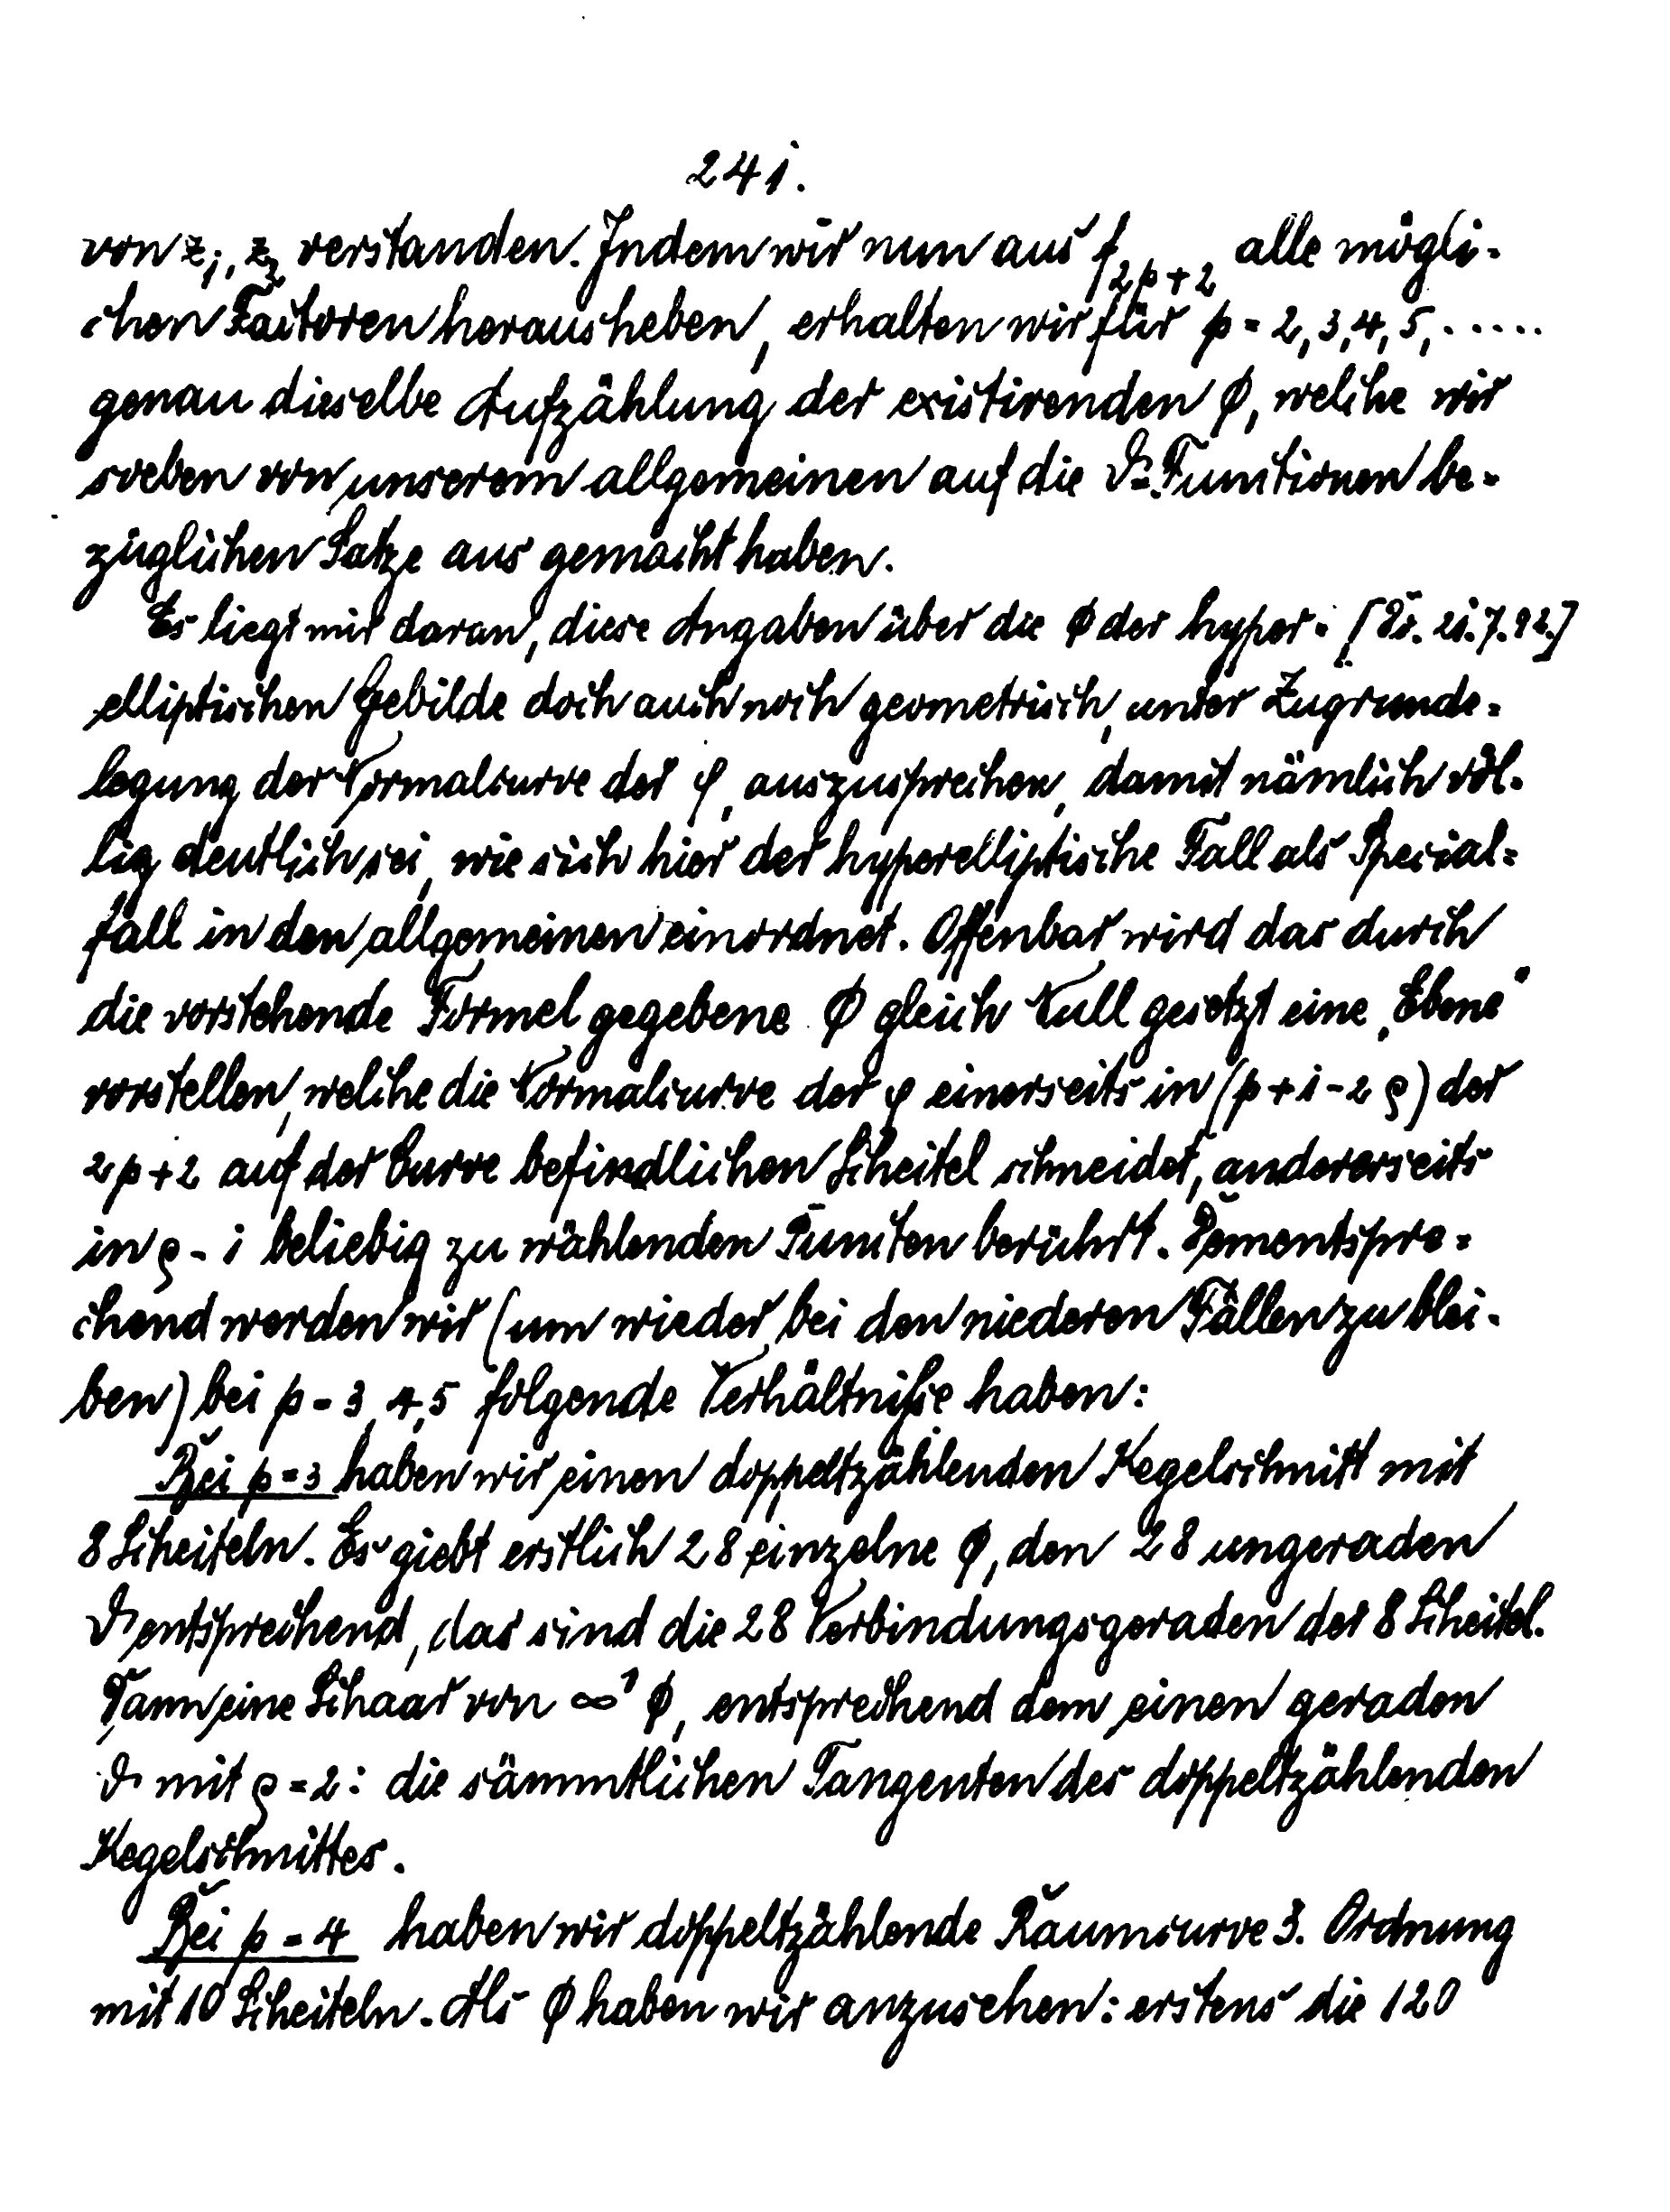 241.
von z₁, z₂ verstanden. Indem wir nun aus f₂ₚ₊₂ alle mögli-
chen Factoren herausheben, erhalten wir für p = 2, 3, 4, 5, .....
genau dieselbe Aufzählung der existirenden Φ, welche wir
soeben von unserem allgemeinen auf die ϑ-Functionen be-
züglichen Satze aus gemacht haben.
Es liegt mir daran, diese Angaben über die Φ der hyper- [Do. 21.7.92.]
elliptischen Gebilde doch auch noch geometrisch, unter Zugrunde-
legung der Normalcurve der φ, auszusprechen, damit nämlich völ-
lig deutlich sei, wie sich hier der hyperelliptische Fall als Special-
fall in den allgemeinen einordnet. Offenbar wird das durch
die vorstehende Formel gegebene Φ gleich Null gesetzt eine „Ebene“
vorstellen, welche die Normalcurve der φ einerseits in (p + 1 - 2ϱ) der
2p + 2 auf der Curve befindlichen Scheitel schneidet, andererseits
in ϱ - 1 beliebig zu wählenden Puncten berührt. Dementspre-
chend werden wir (um wieder bei den niederen Fällen zu blei-
ben) bei p = 3, 4, 5 folgende Verhältniße haben:
Bei p = 3 haben wir einen doppeltzählenden Kegelschnitt mit
8 Scheiteln. Es giebt erstlich 28 einzelne Φ, den 28 ungeraden
ϑ entsprechend, das sind die 28 Verbindungsgeraden der 8 Scheitel.
Dann eine Schaar von ∞¹ Φ, entsprechend dem einen geraden
ϑ mit ϱ = 2: die sämmtlichen Tangenten des doppeltzählenden
Kegelschnittes.
Bei p = 4 haben wir doppeltzählende Raumcurve 3. Ordnung
mit 10 Scheiteln. Als Φ haben wir anzusehen: erstens die 120